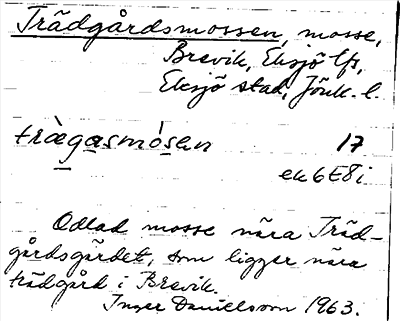 Trädgårdsmossen, mosse,
Brevik, Eksjö lfs,
Eksjö stad, Jönk. l.
trägasmósen 17
ek 6E8i
Odlad mosse nära Träd-
gårdsgärdet, som ligger nära
trädgård i Brevik.
Inger Danielsson 1963.